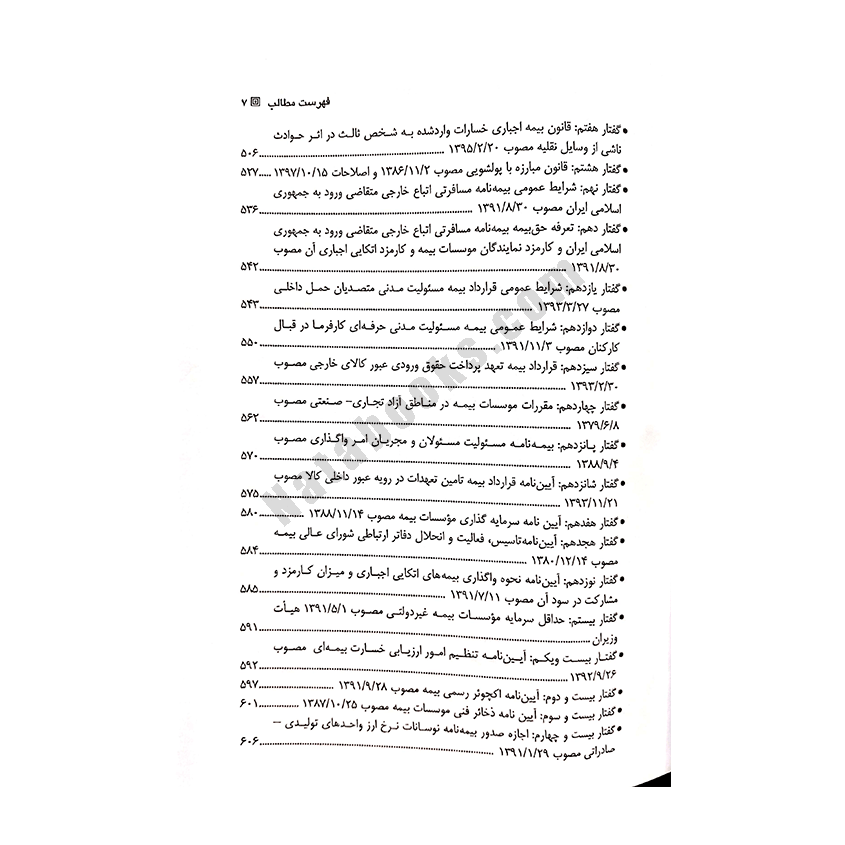 فهرست مطالب ▣ ۷
● گفتار هفتم: قانون بیمه اجباری خسارات واردشده به شخص ثالث در اثر حوادث
ناشی از وسایل نقلیه مصوب ۱۳۹۵/۲/۲۰ ........ ۵۰۶
● گفتار هشتم: قانون مبارزه با پولشویی مصوب ۱۳۸۶/۱۱/۲ و اصلاحات ۱۳۹۷/۱۰/۱۵ ..... ۵۲۷
● گفتار نهم: شرایط عمومی بیمه‌نامه مسافرتی اتباع خارجی متقاضی ورود به جمهوری
اسلامی ایران مصوب ۱۳۹۱/۸/۳۰ ........ ۵۳۶
● گفتار دهم: تعرفه حق‌بیمه بیمه‌نامه مسافرتی اتباع خارجی متقاضی ورود به جمهوری
اسلامی ایران و کارمزد نمایندگان موسسات بیمه و کارمزد اتکایی اجباری آن مصوب
۱۳۹۱/۸/۳۰ ........ ۵۴۲
● گفتار یازدهم: شرایط عمومی قرارداد بیمه مسئولیت مدنی متصدیان حمل داخلی
مصوب ۱۳۹۳/۳/۲۷ ........ ۵۴۳
● گفتار دوازدهم: شرایط عمومی بیمه مسئولیت مدنی حرفه‌ای کارفرما در قبال
کارکنان مصوب ۱۳۹۱/۱۱/۳ ........ ۵۵۰
● گفتار سیزدهم: قرارداد بیمه تعهد پرداخت حقوق ورودی عبور کالای خارجی مصوب
۱۳۹۳/۲/۳۰ ........ ۵۵۷
● گفتار چهاردهم: مقررات موسسات بیمه در مناطق آزاد تجاری– صنعتی مصوب
۱۳۷۹/۶/۸ ........ ۵۶۲
● گفتار پانزدهم: بیمه‌نامه مسئولیت مسئولان و مجریان امر واگذاری مصوب
۱۳۸۸/۹/۴ ........ ۵۷۰
● گفتار شانزدهم: آیین‌نامه قرارداد بیمه تامین تعهدات در رویه عبور داخلی کالا مصوب
۱۳۹۳/۱۱/۲۱ ........ ۵۷۵
● گفتار هفدهم: آیین نامه سرمایه گذاری مؤسسات بیمه مصوب ۱۳۸۸/۱۱/۱۴ ........ ۵۸۰
● گفتار هجدهم: آیین‌نامه‌تاسیس، فعالیت و انحلال دفاتر ارتباطی شورای عالی بیمه
مصوب ۱۳۸۰/۱۲/۱۴ ........ ۵۸۴
● گفتار نوزدهم: آیین‌نامه نحوه واگذاری بیمه‌های اتکایی اجباری و میزان کارمزد و
مشارکت در سود آن مصوب ۱۳۹۱/۷/۱۱ ........ ۵۸۵
● گفتار بیستم: حداقل سرمایه مؤسسات بیمه غیردولتی مصوب ۱۳۹۱/۵/۱ هیأت
وزیران ........ ۵۹۱
● گفتار بیست ویکم: آیین‌نامه تنظیم امور ارزیابی خسارت بیمه‌ای مصوب
۱۳۹۲/۹/۲۶ ........ ۵۹۲
● گفتار بیست و دوم: آیین‌نامه اکچوئر رسمی بیمه مصوب ۱۳۹۱/۹/۲۸ ........ ۵۹۷
● گفتار بیست و سوم: آیین نامه ذخائر فنی موسسات بیمه مصوب ۱۳۸۷/۱۰/۲۵ ........ ۶۰۱
● گفتار بیست و چهارم: اجازه صدور بیمه‌نامه نوسانات نرخ ارز واحدهای تولیدی –
صادراتی مصوب ۱۳۹۱/۱/۲۹ ........ ۶۰۶
Narabooks.com